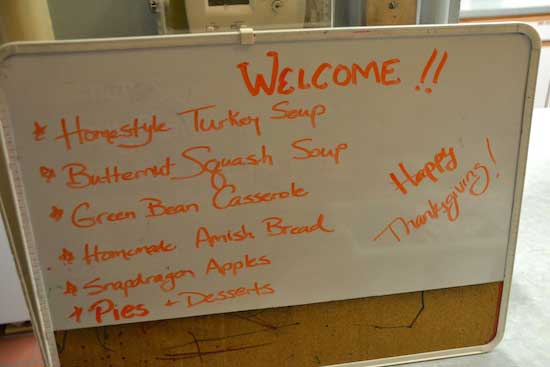 WELCOME!!
* Homestyle Turkey Soup
* Butternut Squash Soup
* Green Bean Casserole
* Homemade Amish Bread
* Snapdragon Apples
* Pies + Desserts
Happy
Thanksgiving!